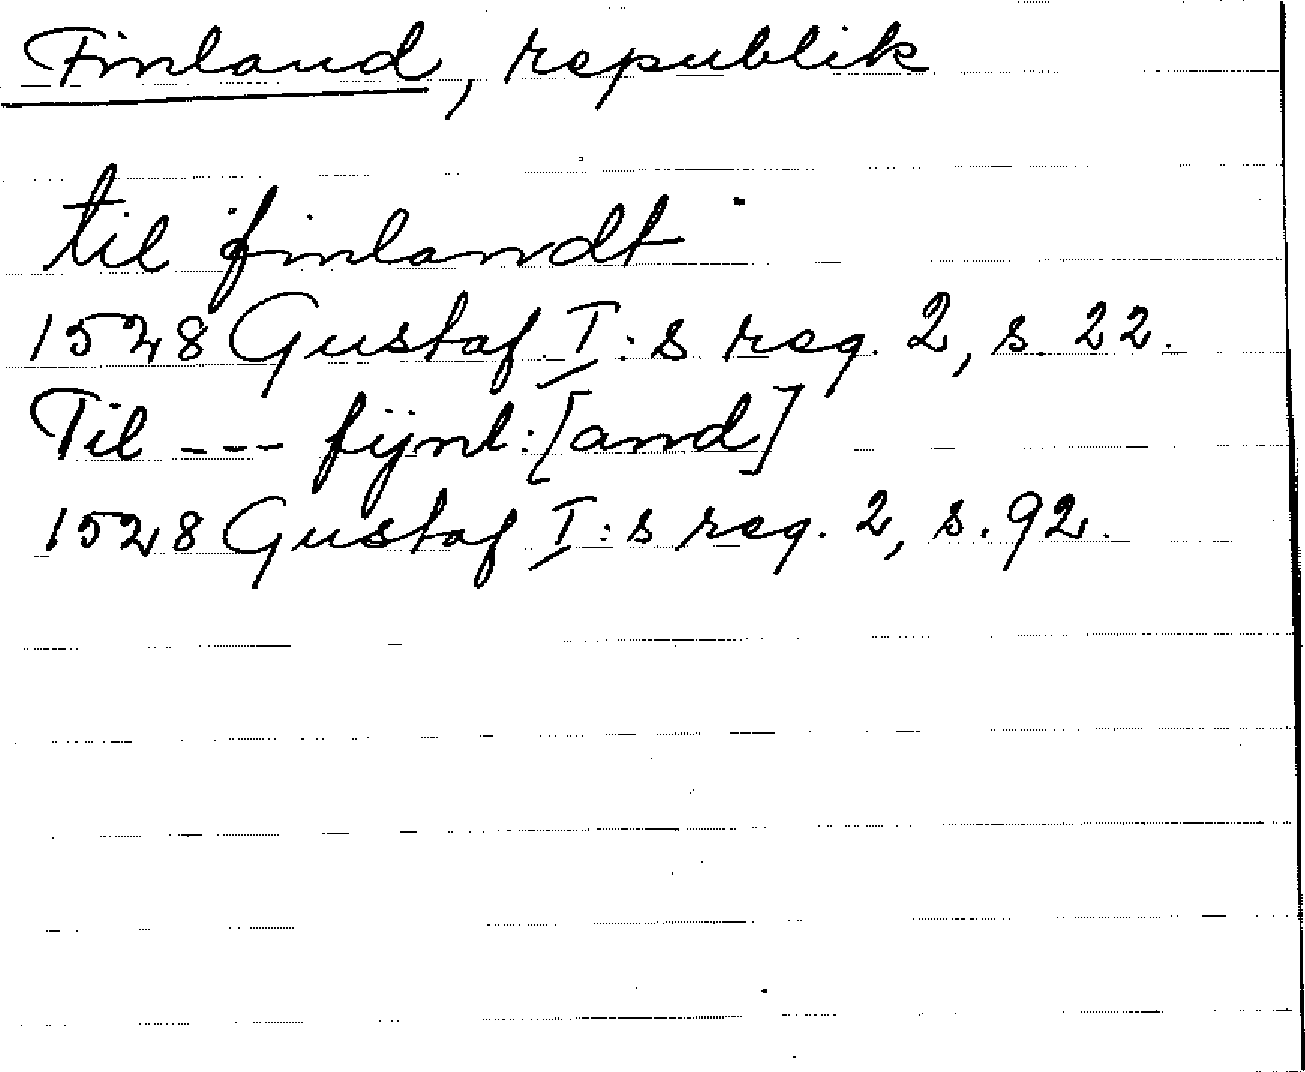 Finland, republik
til finlandt
1528 Gustaf I:s reg. 2, s. 22.
Til --- fijnl:[and]
1528 Gustaf I:s reg. 2, s. 92.